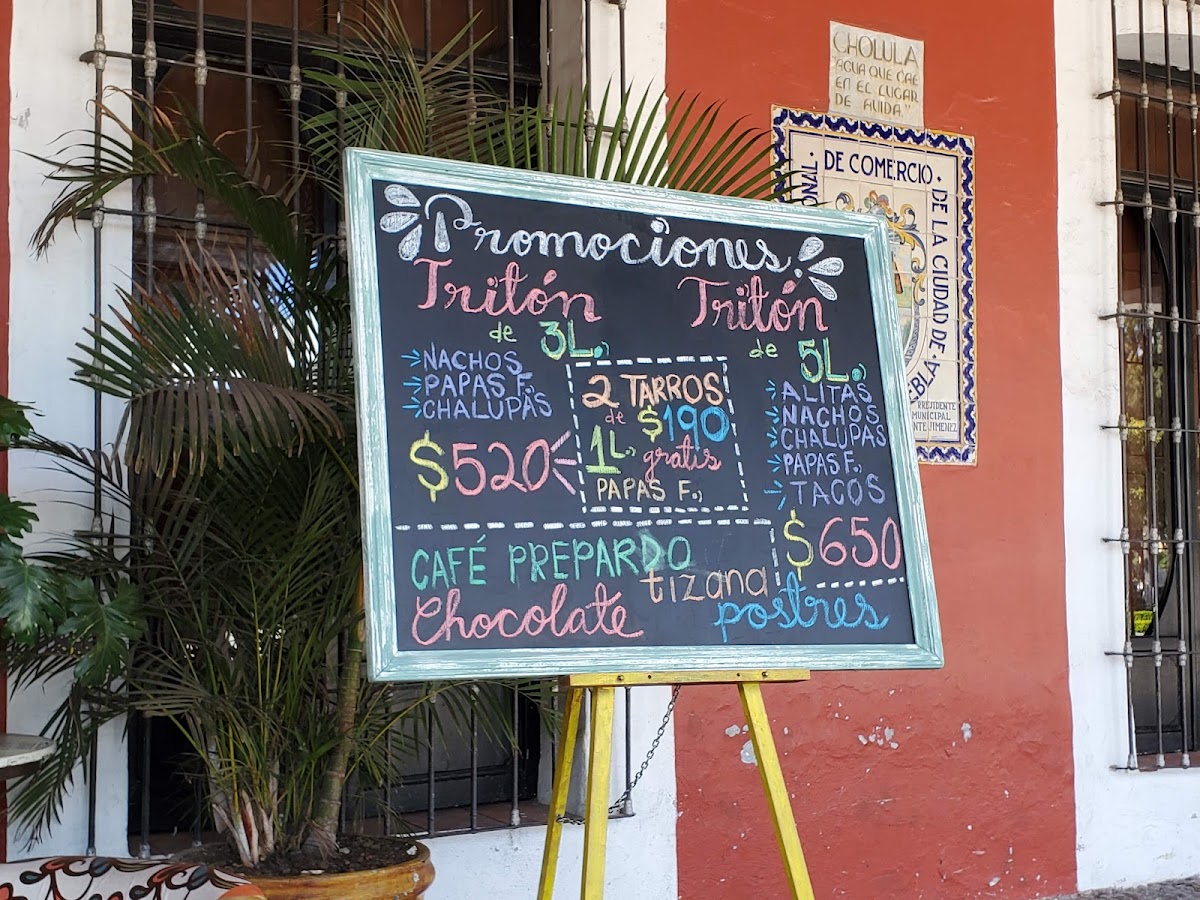 CHOLULA
"AGUA QUE CAE
EN EL LUGAR
DE HUIDA"
DE COMERCIO · DE LA CIUDAD DE ·
PRESIDENTE
MUNICIPAL
Promociones
Tritón
de 3L.
NACHOS
PAPAS F.
CHALUPAS
$520
2 TARROS
de $190
1L. gratis
PAPAS F.
Tritón
de 5L.
ALITAS
NACHOS
CHALUPAS
PAPAS F.
TACOS
$650
CAFÉ PREPARDO
tizana
Chocolate
postres